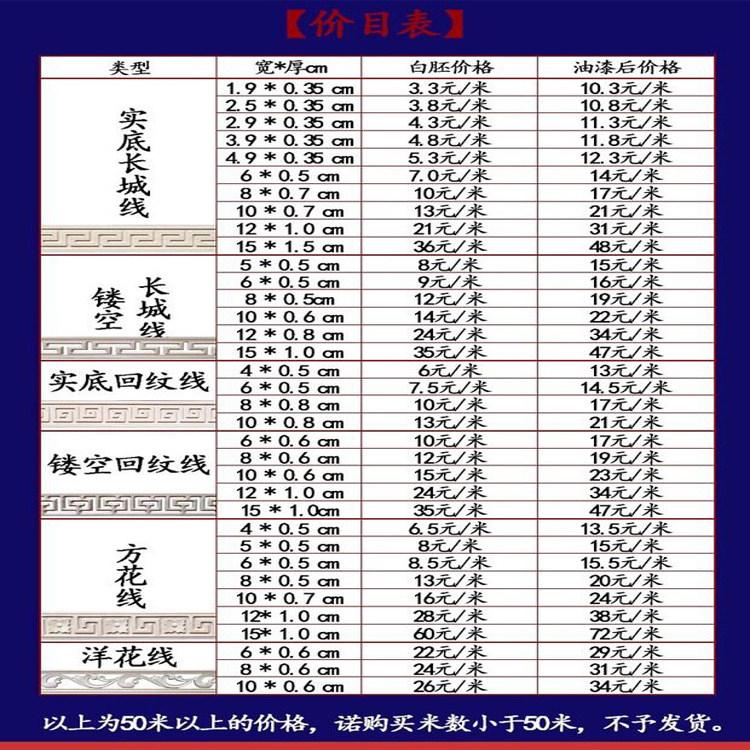 【价目表】
类型 宽*厚cm 白胚价格 油漆后价格
实底长城线
1.9 * 0.35 cm 3.3元/米 10.3元/米
2.5 * 0.35 cm 3.8元/米 10.8元/米
2.9 * 0.35 cm 4.3元/米 11.3元/米
3.9 * 0.35 cm 4.8元/米 11.8元/米
4.9 * 0.35 cm 5.3元/米 12.3元/米
6 * 0.5 cm 7.0元/米 14元/米
8 * 0.7 cm 10元/米 17元/米
10 * 0.7 cm 13元/米 21元/米
12 * 1.0 cm 21元/米 31元/米
15 * 1.5 cm 36元/米 48元/米
镂空长城线
5 * 0.5 cm 8元/米 15元/米
6 * 0.5 cm 9元/米 16元/米
8 * 0.5cm 12元/米 19元/米
10 * 0.6 cm 14元/米 22元/米
12 * 0.8 cm 24元/米 34元/米
15 * 1.0 cm 35元/米 47元/米
实底回纹线
4 * 0.5 cm 6元/米 13元/米
6 * 0.5 cm 7.5元/米 14.5元/米
8 * 0.8 cm 10元/米 17元/米
10 * 0.8 cm 13元/米 21元/米
镂空回纹线
6 * 0.6 cm 10元/米 17元/米
8 * 0.6 cm 12元/米 19元/米
10 * 0.6 cm 15元/米 23元/米
12 * 1.0 cm 24元/米 34元/米
15 * 1.0cm 35元/米 47元/米
方花线
4 * 0.5 cm 6.5元/米 13.5元/米
5 * 0.5 cm 8元/米 15元/米
6 * 0.5 cm 8.5元/米 15.5元/米
8 * 0.5 cm 13元/米 20元/米
10 * 0.7 cm 16元/米 24元/米
12* 1.0 cm 28元/米 38元/米
15* 1.0 cm 60元/米 72元/米
洋花线
6 * 0.6 cm 22元/米 29元/米
8 * 0.6 cm 24元/米 31元/米
10 * 0.6 cm 26元/米 34元/米
以上为50米以上的价格，诺购买米数小于50米，不予发货。